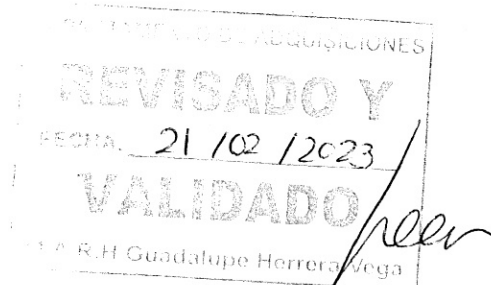 DEPARTAMENTO DE ADQUISICIONES
REVISADO Y
FECHA. 21/02/2023
VALIDADO
R.H Guadalupe Herrera Vega